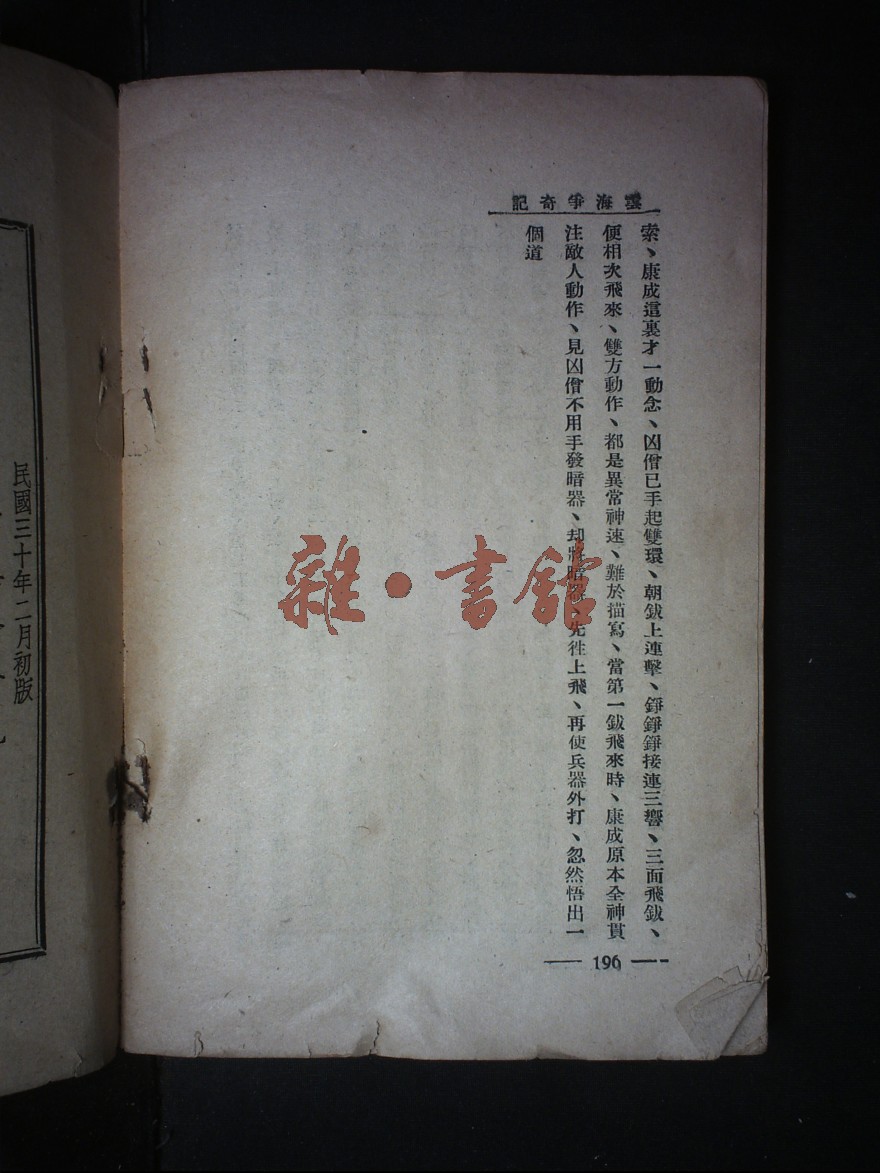 雲海爭奇記
索、康成這裏才一動念、凶僧已手起雙環、朝鈸上連擊、錚錚錚接連三響、三面飛鈸、
便相次飛來、雙方動作、都是異常神速、難於描寫、當第一鈸飛來時、康成原本全神貫
注敵人動作、見凶僧不用手發暗器、却將暗器、先徃上飛、再使兵器外打、忽然悟出一
個道
196
雜·書館
民國三十年二月初版